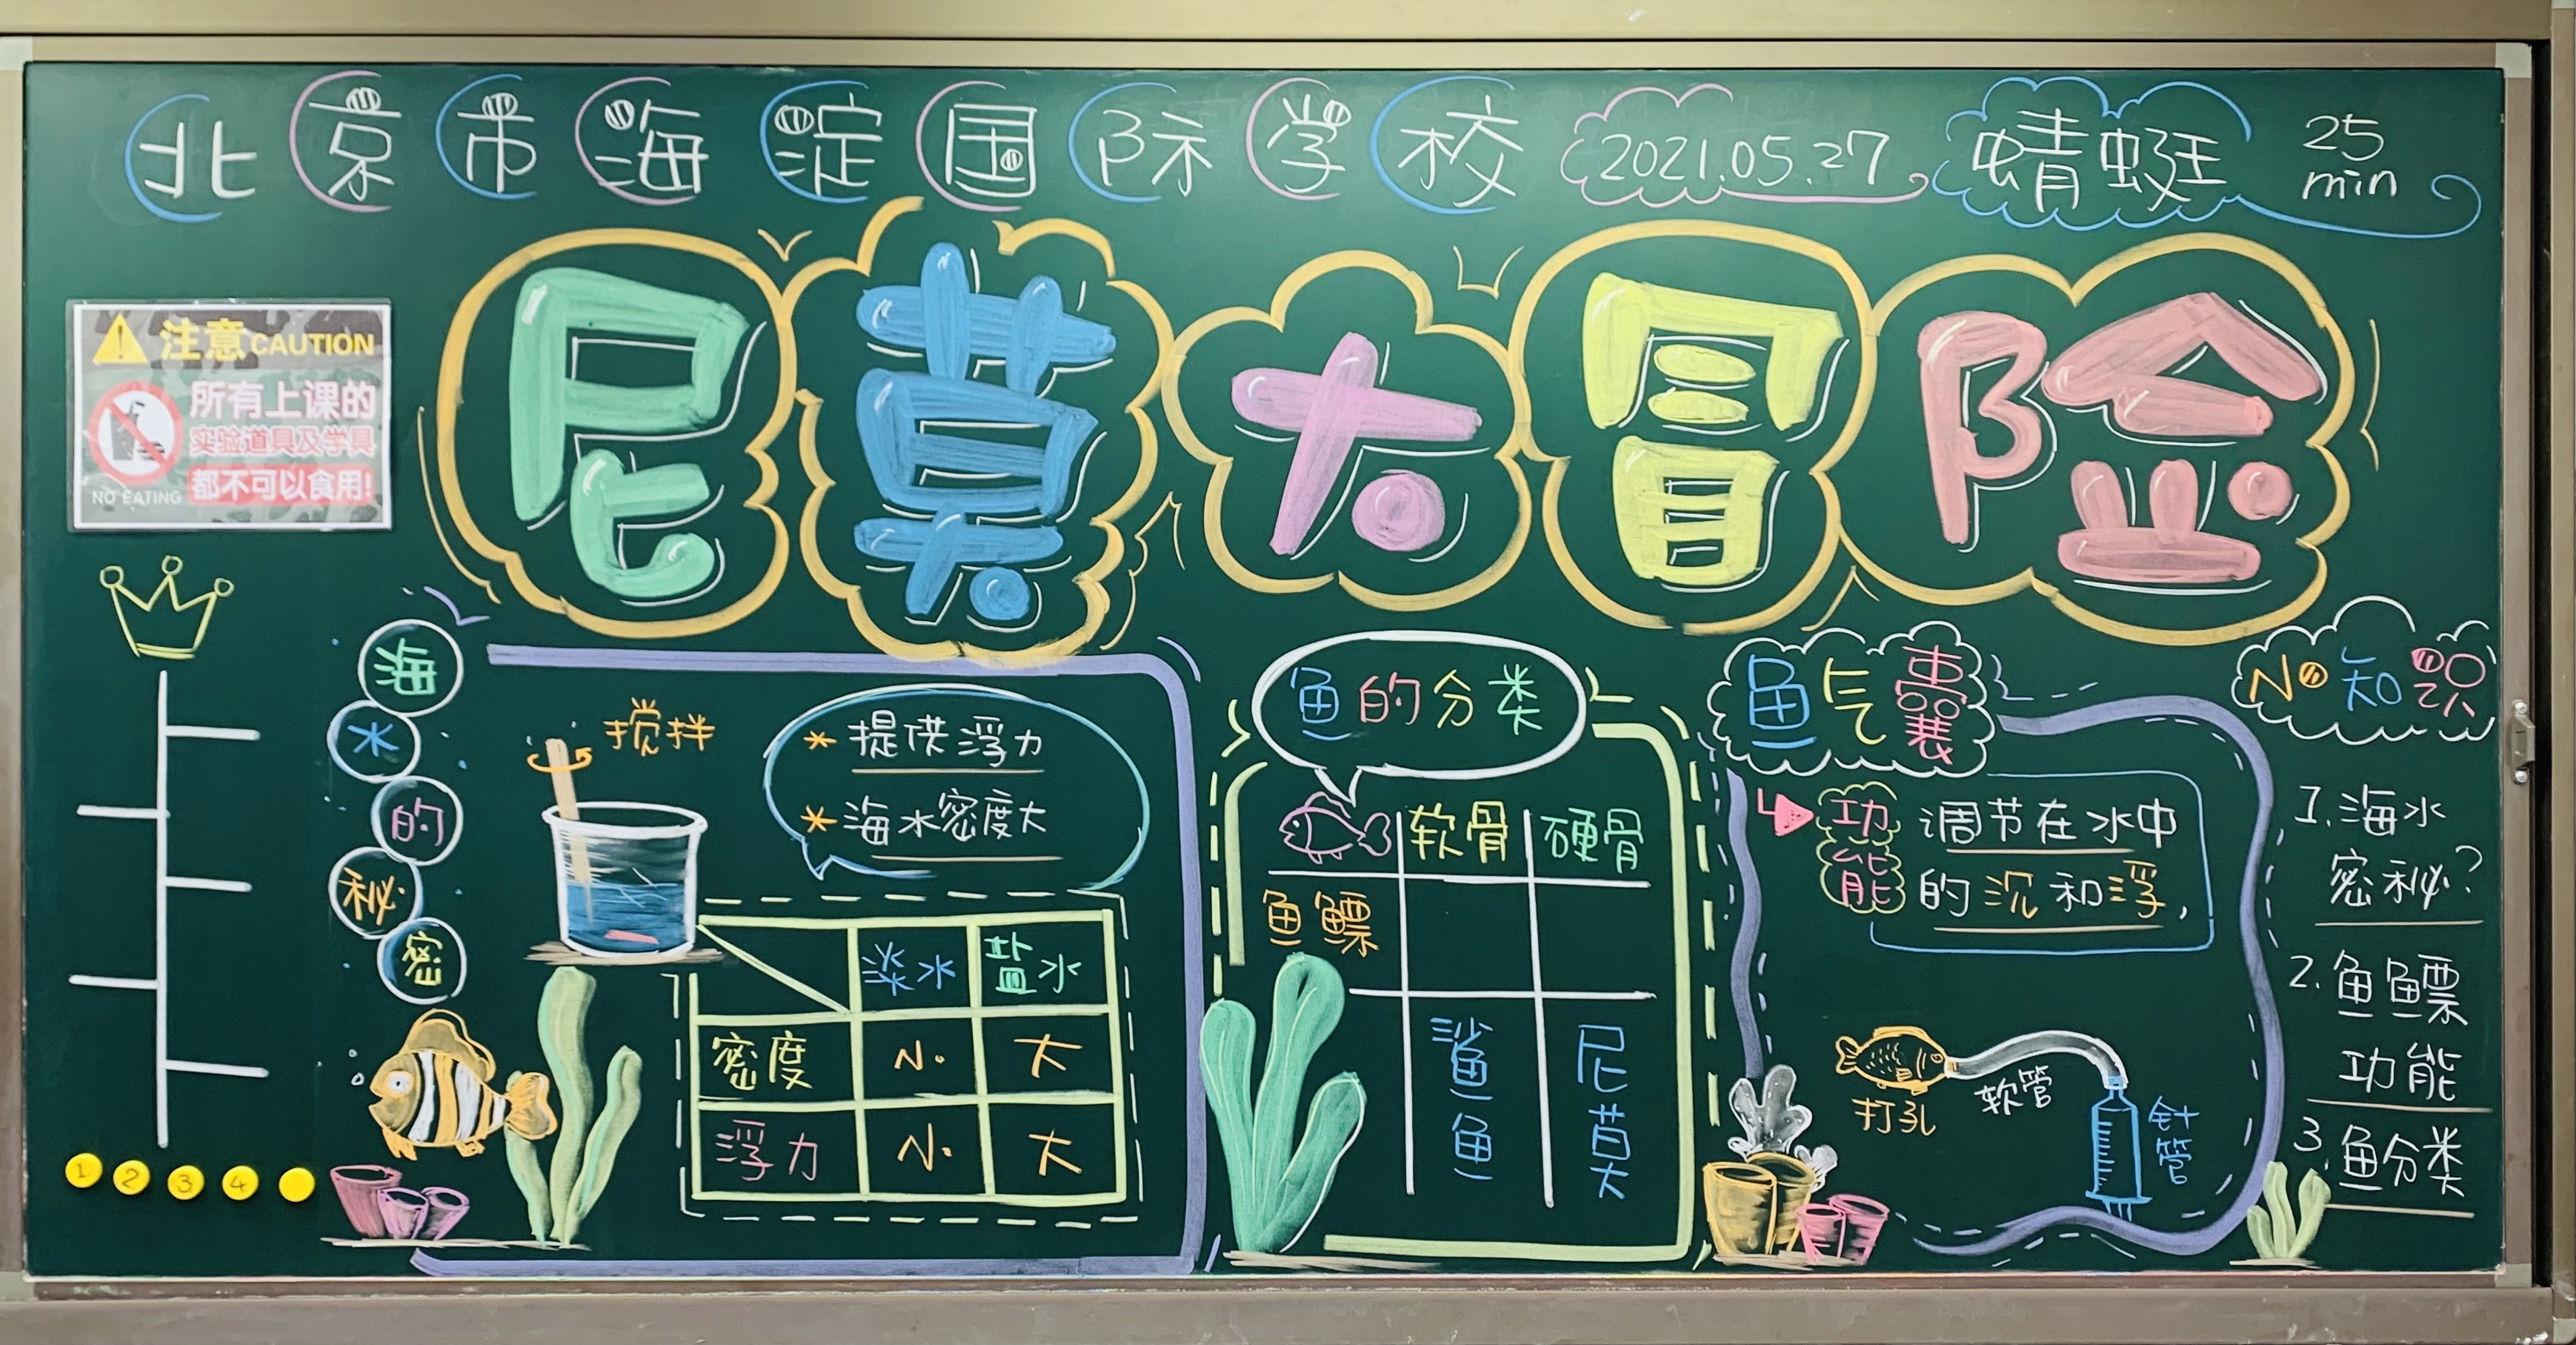 北京市海淀国际学校 2021.05.27 蜻蜓 25 min
尼莫大冒险
注意 CAUTION
所有上课的
实验道具及学具
都不可以食用!
NO EATING
1 2 3 4
海水的秘密
搅拌
* 提供浮力
* 海水密度大
淡水 盐水
密度 小 大
浮力 小 大
鱼的分类
软骨 硬骨
鱼鳔
鲨鱼 尼莫
鱼气囊
功能 调节在水中
的沉和浮,
打孔
软管
针管
小知识
1. 海水
密秘?
2. 鱼鳔
功能
3. 鱼分类